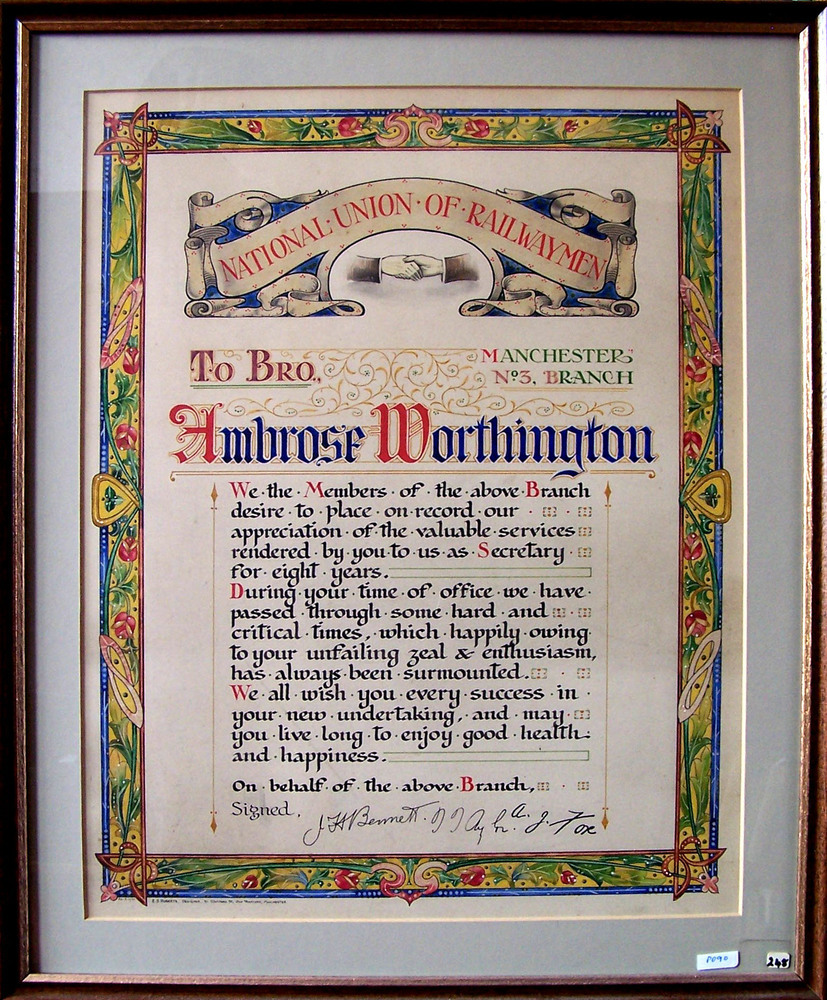 NATIONAL·UNION·OF·RAILWAYMEN
To Bro.,
MANCHESTER
No3, BRANCH
Ambrose Worthington
We·the·Members·of·the·above·Branch
desire·to·place·on·record·our·
appreciation·of·the·valuable·services
rendered·by·you·to·us·as·Secretary·
for·eight·years.
During·your·time·of·office·we·have·
passed·through·some·hard·and
critical·times,·which·happily·owing·
to·your·unfailing·zeal·&·enthusiasm,
has·always·been·surmounted.
We·all·wish·you·every·success·in·
your·new·undertaking,·and·may·
you·live·long·to·enjoy·good·health·
and·happiness.
On·behalf·of·the·above·Branch,
Signed, J H Bennett. J. Fox
248